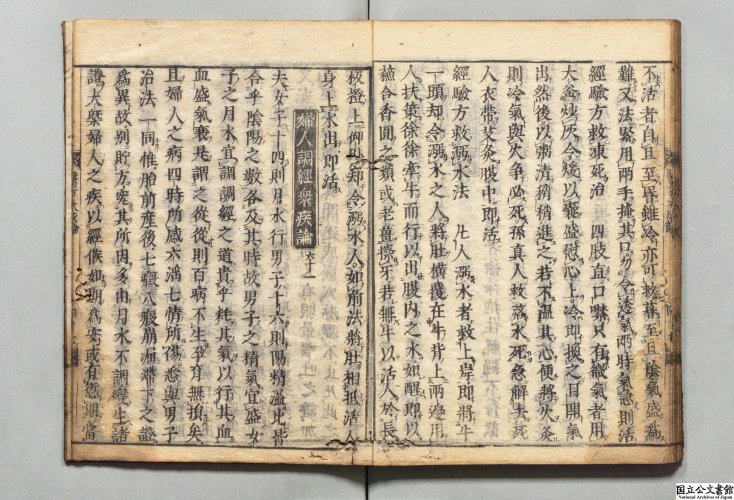 不活者自旦至昏雖冷亦可救暮至旦陰氣盛爲
難又法緊用兩手掩其口勿令透氣兩時氣急則活
經驗方救凍死治 四肢直口噤只有微氣者用
大釜炒灰令煖以囊盛慰心上冷即換之目開氣
出然後以粥清稍稍進之若不温其心便將火灸
則冷氣與火爭必死孫真人救落水死急解去死
人衣帶艾灸臍中即活
經驗方救溺水法 凡人溺水者救上岸即將牛
一頭却令溺水之人將肚橫覆在牛背上兩邊用
人扶策徐徐牽牛而行以出腹内之水如醒即以
蘇合香圓之類或老薑擦牙若無牛以活人於長
板櫈上仰臥却令溺水人如前法將肚相抵活
身上水出即活
婦人調經衆疾論 六十一
夫女子十四則月水行男子十六則陽精溢此皆
合乎陰陽之數各及其時故男子之精氣宜盛女
子之月水宜調調經之道貴乎耗其氣以行其血
血盛氣衰是謂之從從則百病不生孕育無損矣
且婦人之病四時所感六淫七情所傷悉與男子
治法一同惟胎前產後七癥八瘕崩漏帶下之證
爲異故别貯方究其所因多由月水不調變生諸
證大槩婦人之疾以經候如期爲安或有愆期當
國立公文書館
National Archives of Japan